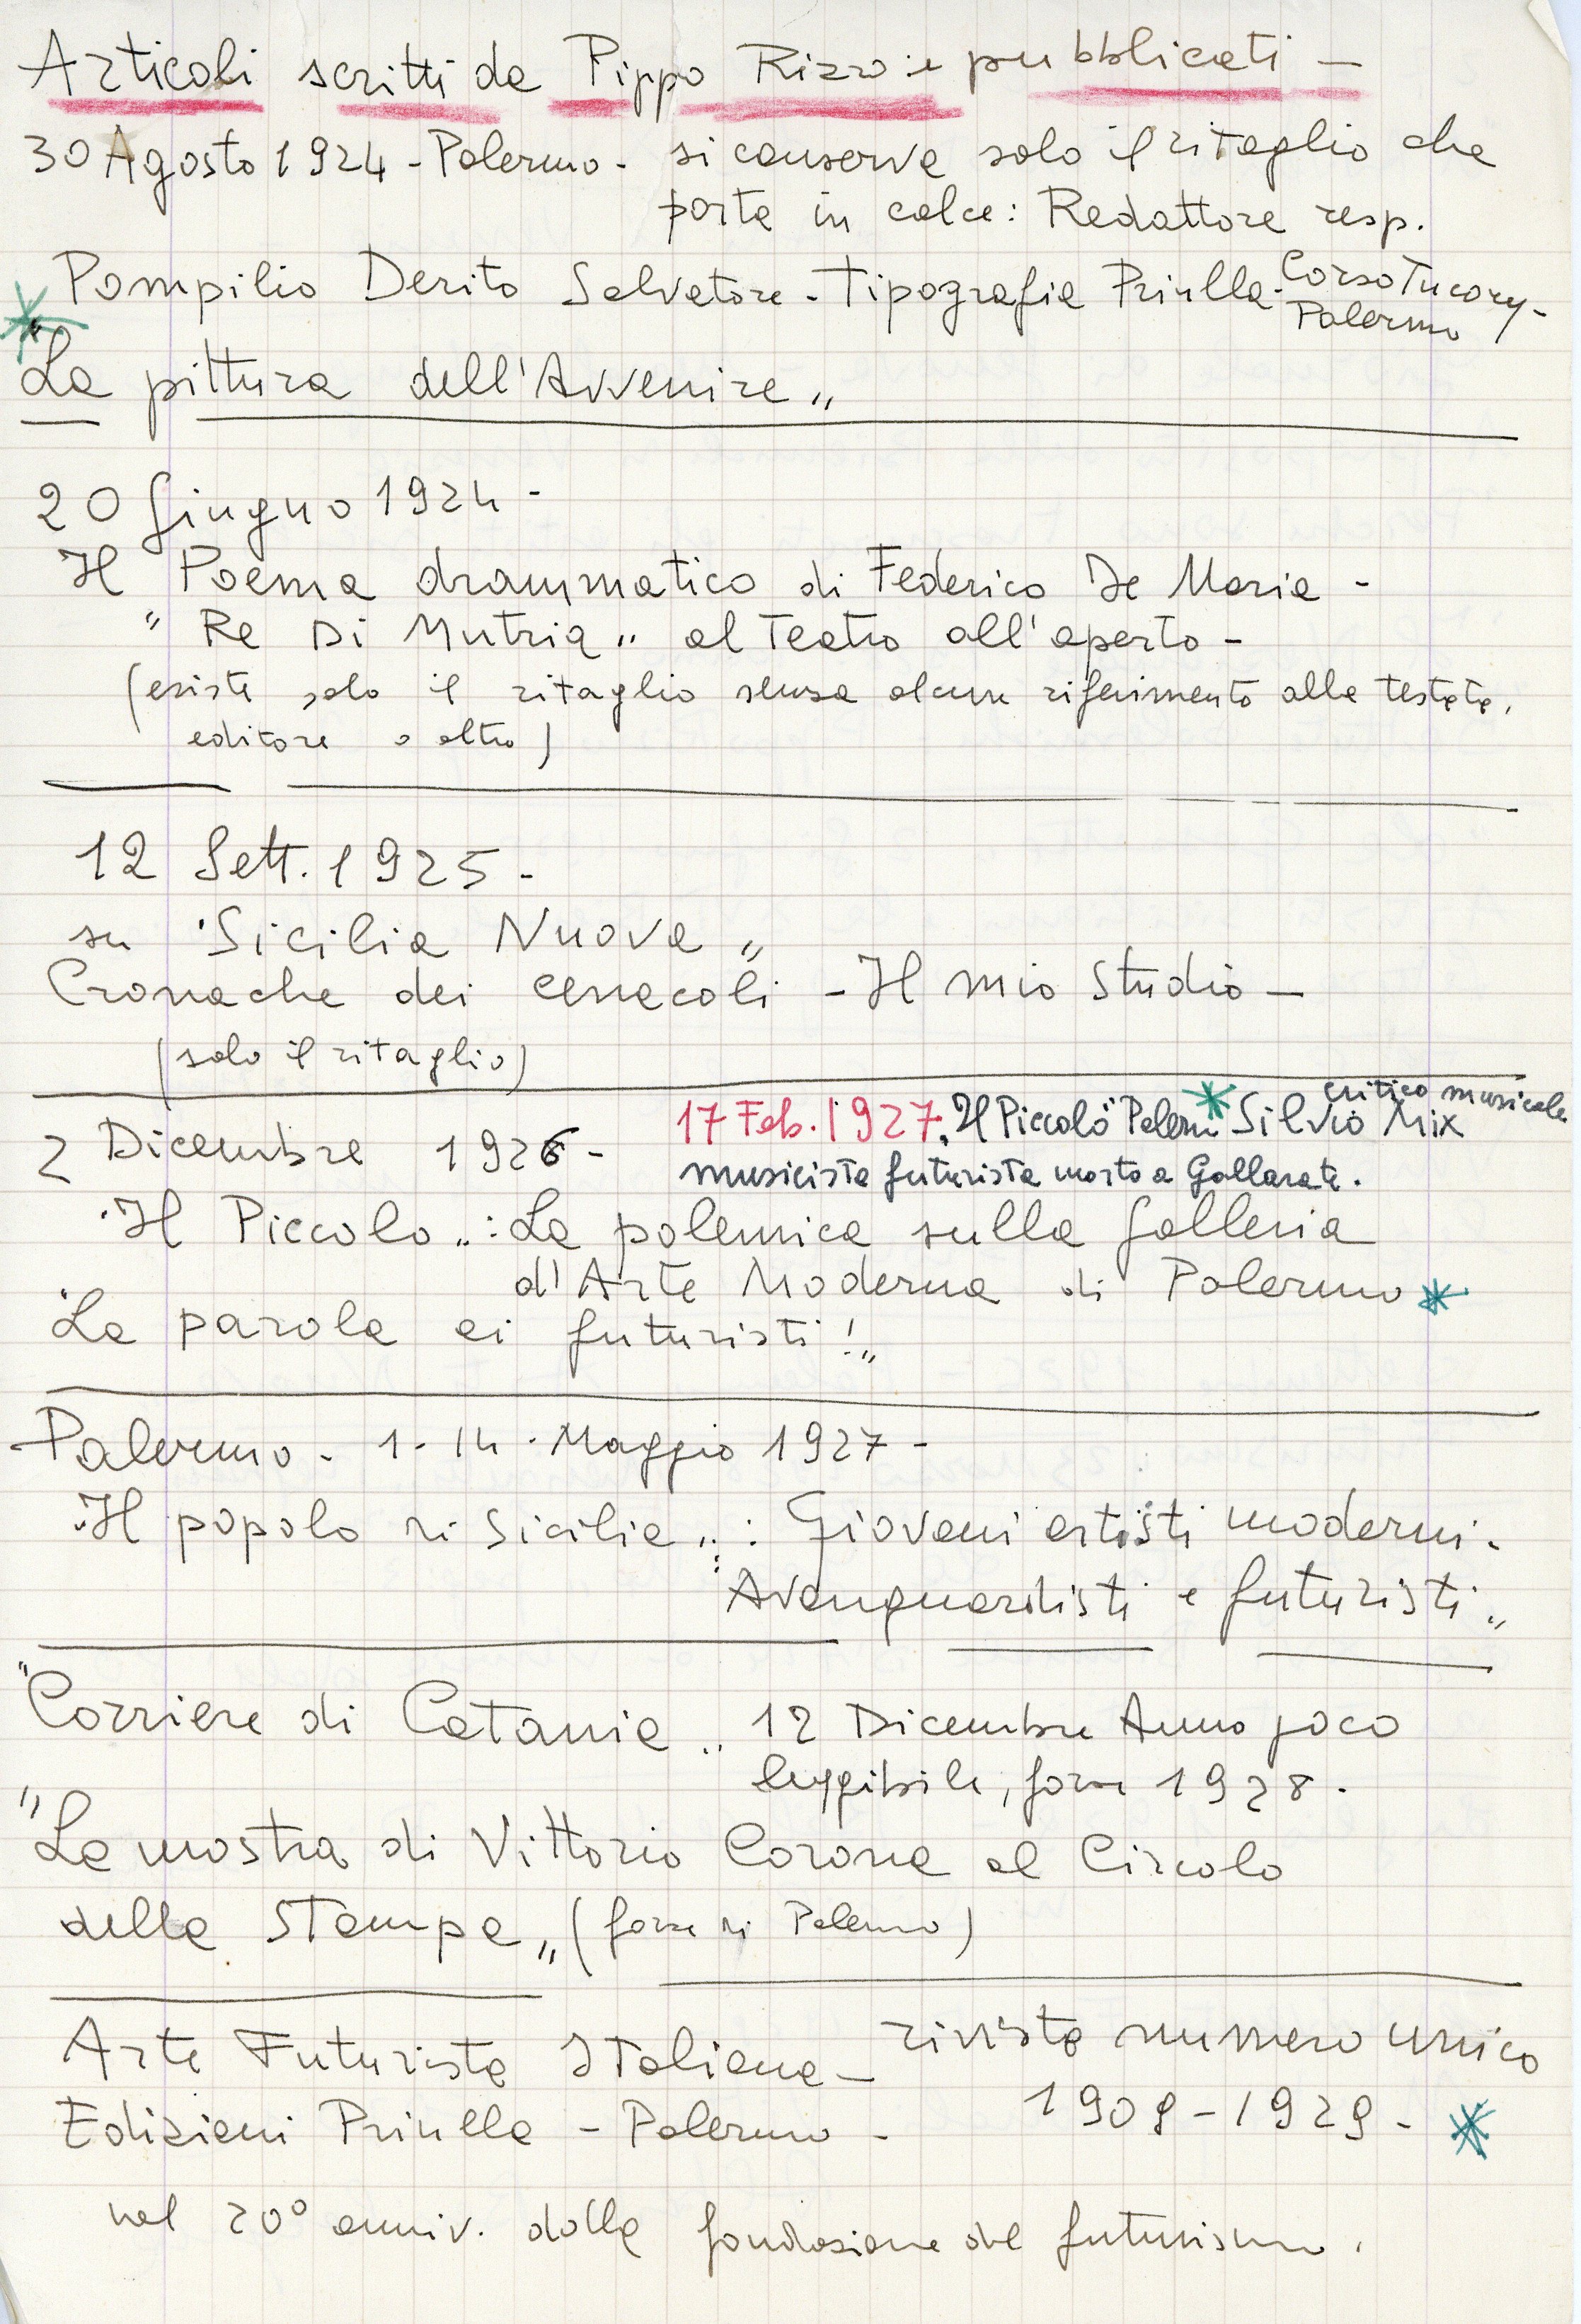 Articoli scritti da Pippo Rizzo e pubblicati -
30 Agosto 1924 - Palermo - si conserva solo il ritaglio che
porta in calce: Redattore resp.
Pompilio Derito Salvatore - Tipografia Priulla - Corso Tucory -
Palermo
"La pittura dell'Avvenire"
20 Giugno 1924 -
Il Poema drammatico di Federico De Maria -
"Re Di Mutria" al Teatro all'aperto -
(esiste solo il ritaglio senza alcun riferimento alla testata,
editore o altro)
12 Sett. 1925 -
su "Sicilia Nuova"
Cronache dei cenacoli - Il mio studio -
(solo il ritaglio)
17 Feb. 1927. "Il Piccolo" Palermo Silvio Mix critico musicale
musicista futurista morto a Gallarate.
2 Dicembre 1926 -
"Il Piccolo": La polemica sulla Galleria
d'Arte Moderna di Palermo
"La parola ai futuristi!"
Palermo - 1-14 - Maggio 1927 -
"Il popolo di Sicilia": Giovani artisti moderni -
Avanguardisti e futuristi"
"Corriere di Catania" 12 Dicembre Anno poco
leggibile, forse 1928 -
"La mostra di Vittorio Corona al Circolo
della Stampa" (forse di Palermo)
Arte Futurista Italiana - rivista numero unico
Edizioni Priulla - Palermo - 1909 - 1929 -
nel 20° anniv. dalla fondazione del futurismo.